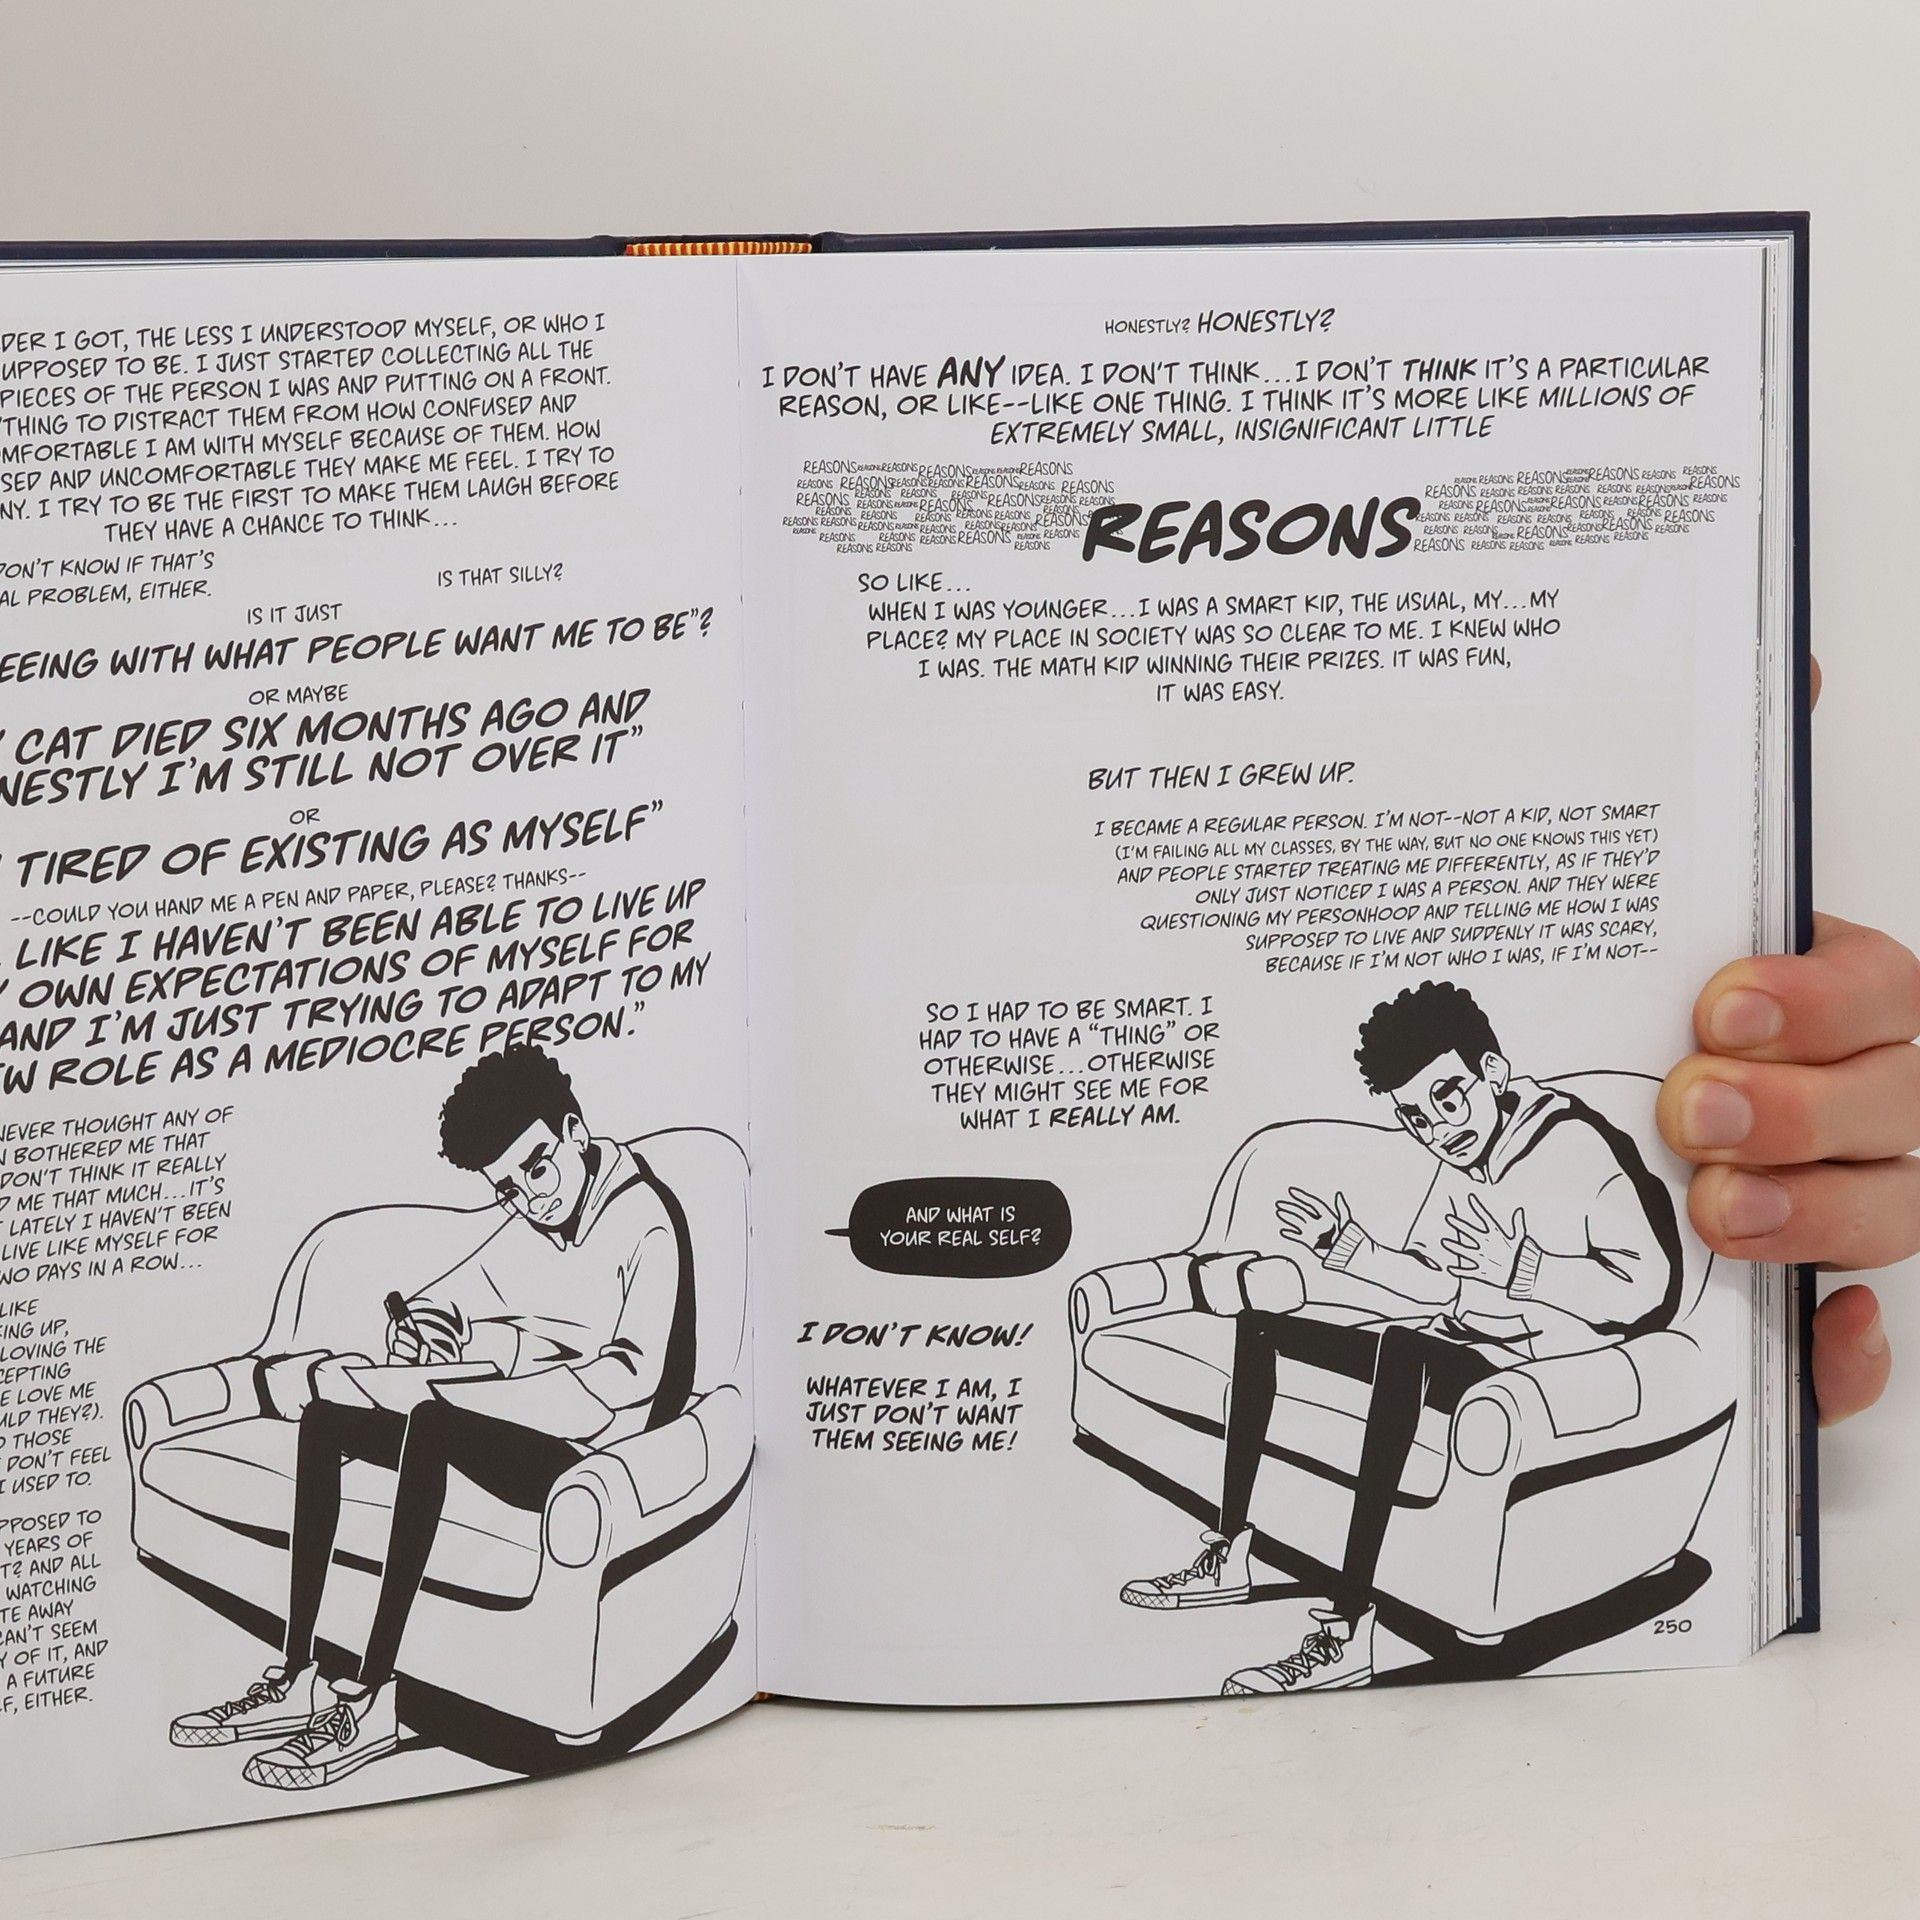 DER I GOT, THE LESS I UNDERSTOOD MYSELF, OR WHO I
UPPOSED TO BE. I JUST STARTED COLLECTING ALL THE
PIECES OF THE PERSON I WAS AND PUTTING ON A FRONT.
THING TO DISTRACT THEM FROM HOW CONFUSED AND
MFORTABLE I AM WITH MYSELF BECAUSE OF THEM. HOW
SED AND UNCOMFORTABLE THEY MAKE ME FEEL. I TRY TO
NY. I TRY TO BE THE FIRST TO MAKE THEM LAUGH BEFORE
THEY HAVE A CHANCE TO THINK...
DON'T KNOW IF THAT'S
AL PROBLEM, EITHER.
IS THAT SILLY?
IS IT JUST
EEING WITH WHAT PEOPLE WANT ME TO BE"?
OR MAYBE
Y CAT DIED SIX MONTHS AGO AND
NESTLY I'M STILL NOT OVER IT"
OR
TIRED OF EXISTING AS MYSELF"
--COULD YOU HAND ME A PEN AND PAPER, PLEASE? THANKS--
LIKE I HAVEN'T BEEN ABLE TO LIVE UP
Y OWN EXPECTATIONS OF MYSELF FOR
AND I'M JUST TRYING TO ADAPT TO MY
EW ROLE AS A MEDIOCRE PERSON."
NEVER THOUGHT ANY OF
N BOTHERED ME THAT
DON'T THINK IT REALLY
D ME THAT MUCH...IT'S
T LATELY I HAVEN'T BEEN
LIVE LIKE MYSELF FOR
WO DAYS IN A ROW...
LIKE
KING UP,
LOVING THE
CEPTING
E LOVE ME
ULD THEY?).
D THOSE
T DON'T FEEL
I USED TO.
PPOSED TO
YEARS OF
T? AND ALL
WATCHING
TE AWAY
CAN'T SEEM
Y OF IT, AND
A FUTURE
LF, EITHER.
HONESTLY? HONESTLY?
I DON'T HAVE ANY IDEA. I DON'T THINK...I DON'T THINK IT'S A PARTICULAR
REASON, OR LIKE--LIKE ONE THING. I THINK IT'S MORE LIKE MILLIONS OF
EXTREMELY SMALL, INSIGNIFICANT LITTLE
REASONS
SO LIKE...
WHEN I WAS YOUNGER...I WAS A SMART KID, THE USUAL, MY...MY
PLACE? MY PLACE IN SOCIETY WAS SO CLEAR TO ME. I KNEW WHO
I WAS. THE MATH KID WINNING THEIR PRIZES. IT WAS FUN,
IT WAS EASY.
BUT THEN I GREW UP.
I BECAME A REGULAR PERSON. I'M NOT--NOT A KID, NOT SMART
(I'M FAILING ALL MY CLASSES, BY THE WAY, BUT NO ONE KNOWS THIS YET)
AND PEOPLE STARTED TREATING ME DIFFERENTLY, AS IF THEY'D
ONLY JUST NOTICED I WAS A PERSON. AND THEY WERE
QUESTIONING MY PERSONHOOD AND TELLING ME HOW I WAS
SUPPOSED TO LIVE AND SUDDENLY IT WAS SCARY,
BECAUSE IF I'M NOT WHO I WAS, IF I'M NOT--
SO I HAD TO BE SMART. I
HAD TO HAVE A "THING" OR
OTHERWISE...OTHERWISE
THEY MIGHT SEE ME FOR
WHAT I REALLY AM.
AND WHAT IS
YOUR REAL SELF?
I DON'T KNOW!
WHATEVER I AM, I
JUST DON'T WANT
THEM SEEING ME!
250